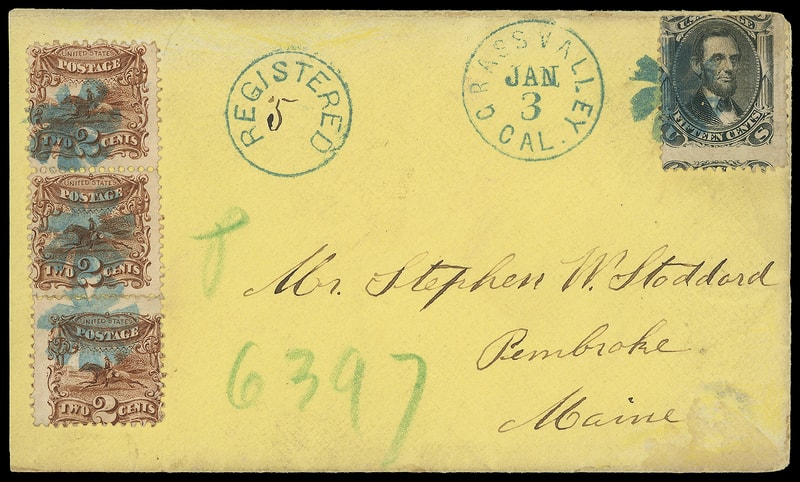 UNITED STATES
POSTAGE
TWO 2 CENTS
UNITED STATES
POSTAGE
TWO 2 CENTS
UNITED STATES
POSTAGE
TWO 2 CENTS
REGISTERED
5
GRASS VALLEY
JAN
3
CAL.
U.S. POSTAGE
FIFTEEN CENTS
U S
Mr. Stephen W. Stoddard
Pembroke
Maine
6397